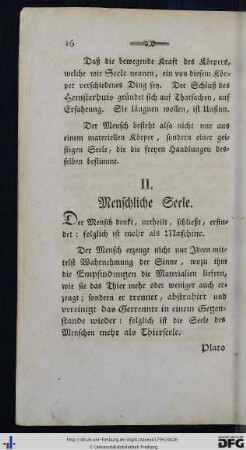 16
Daß die bewegende Kraft des Körpers,
welche wir Seele nennen, ein von diesem Kör-
per verschiedenes Ding sey. Der Schluß des
Hemsterhuis gründet sich auf Thatsachen, auf
Erfahrung. Sie läugnen wollen, ist Unsinn.
Der Mensch besteht also nicht nur aus
einem materiellen Körper, sondern einer geisti-
gen Seele, die die freyen Handlungen des-
selben bestimmt.
II.
Menschliche Seele.
Der Mensch denkt, urtheilt, schließt, erfin-
det: folglich ist mehr als Maschine.
Der Mensch erzeugt nicht nur Ideen mit-
telst Wahrnehmung der Sinne, wozu ihm
die Empfindungen die Materialien liefern,
wie sie das Thier mehr oder weniger auch er-
zeugt; sondern er trennet, abstrahirt und
vereinigt das Getrennte in einem Gegen-
stande wieder: folglich ist die Seele des
Menschen mehr als Thierseele.
Plato
http://dl.ub.uni-freiburg.de/diglit/
© Universitätsbibliothek Freiburg
gefördert durch
DFG